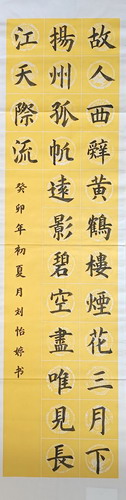 故人西辭黃鶴樓煙花三月下
揚州孤帆遠影碧空盡唯見長
江天際流
癸卯年初夏月刘怡婷书